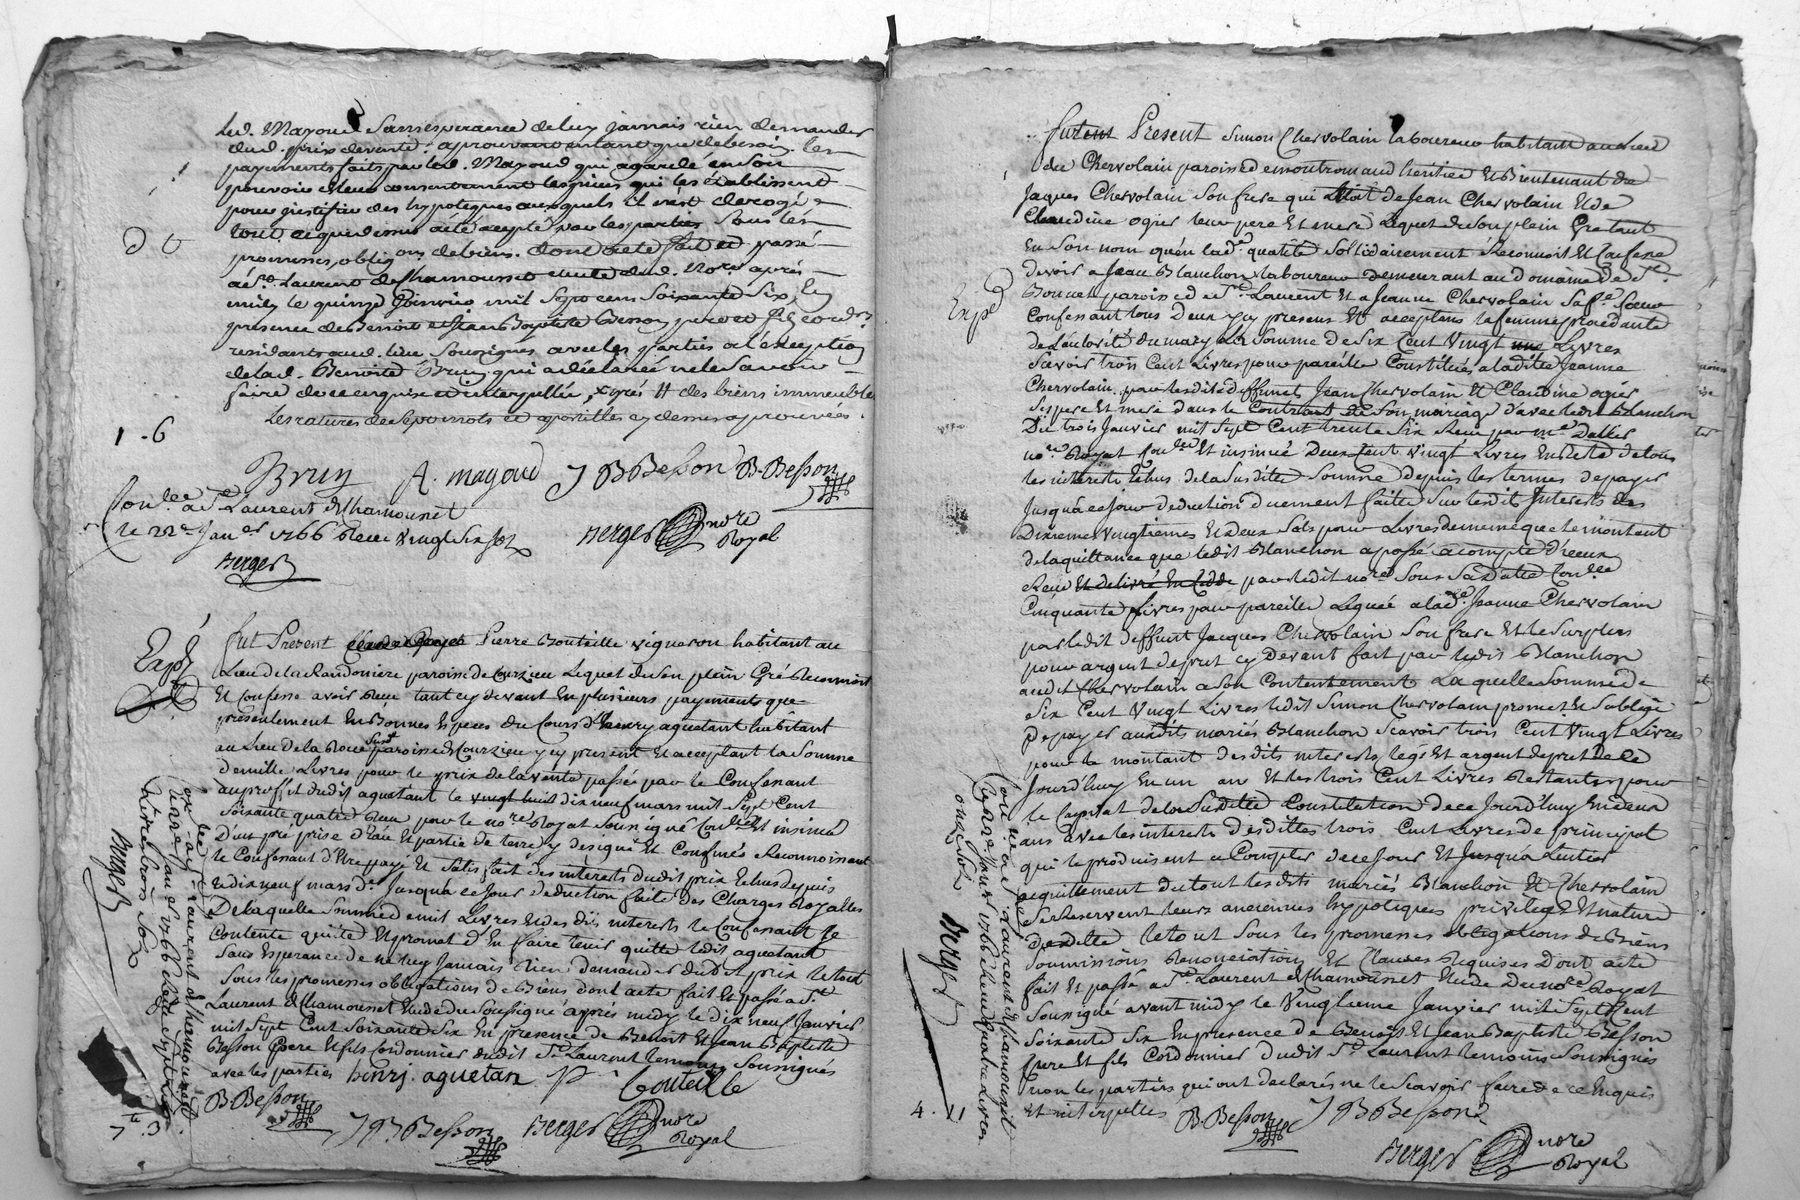 led. Mayoud sans esperance de luy jamais rien demander
dud. prix de vente aprouvant entant que de besoin les
payements faits par led. Mayoud qui a gardé en son
pouvoir et leur consentement les pieces qui les établissent
pour justifier des hypoteques auxquels il n'est derogé
tout ce que dessus a été acepté par les parties sous les
promesses, obligõns de biens. dont acte fait et passé
à St. Laurent de Chamousset etude dud. Nore après
midy le quinze Janvier mil sept cens soixante six, En
presence de Benoit et Jean Baptiste Besson pere et fils cordrs
residants aud. lieu soussignés avec les parties à l'exception
de lad. Benoite Brun qui a déclaré ne le savoir
faire de ce enquise et interpellée, des biens immeubles
Les ratures de sept mots et apostilles cy dessus aprouvées.
1 - 6
Brun A. magoud J B Besson B. Besson
Conlee à St Laurent de Chamousset
le 22e Janer 1766 Reçu vingt six sols
Berger
Berger nore Royal
Expd
fut Present Pierre Bouteille vigneron habitant au
Lieu de la Randoniere paroisse de Courzieu Lequel de son plein Gré Reconnoit
Et Confesse avoir Reçu tant cy devant En plusieurs payements que
presentement En Bonnes Especes du Cours d'henry aguetant habitant
au Lieu de la Roue susdt paroisse de Courzieu ycy present Et acceptant la Somme
de mille Livres pour le prix de la vente passée par le Confessant
au proffit dudit aguetant le dix neuf mars mil Sept Cent
Soixante quatre Reçu par le nore Royal Soussigné Conlee Et insinué
D'un pré prise d'Eau Et partie de terre y designé Et Confinés Reconnoissant
le Confessant d'Etre payé Et Satisfait des interets dudit prix Echus depuis
le dix neuf mars dr. Jusqu'à ce Jour deduction faite des Charges Royalles
De laquelle Somme de mil Livres Et des dits interets le Confessant Se
Contente quitte Et promet d'En faire tenir quitte ledit aguetant
Sans Esperance de ne luy Jamais Rien demander dudit prix le tout
Sous les promesses obligations de Biens dont acte fait Et passé à St
Laurent de Chamousset Etude du Soussigné après midy le dix neuf Janvier
mil Sept Cent Soixante Six En presence de Benoit Et Jean Baptiste
Besson pere Et fils Cordonnier dudit St Laurent temoins Soussignés
avec les parties henrj. aguetan P. Bouteille
B. Besson
J B Besson Berger nore Royal
St Laurent de Chamousset
Berger
furent Present Simon Chervolain laboureur habitant au lieu
du Chervolain paroisse de montromand heritier Et Bientenant de
Jaques Chervolain Son frere qui Etoit de Jean Chervolain Et de
Claudine ogier leur pere Et mere Lequel de son plein Gré tant
En Son nom qu'en lade. qualité Sollidairement Reconnoit Et Confesse
devoir à Jean Blanchon laboureur demeurant au domaine de St
Bonnet paroisse de St Laurent Et à Jeanne Chervolain Sa fe. Soeur
Confessant tous Deux ycy presens Et acceptans la femme procedante
de L'autorité du mary la Somme de Six Cent Vingt Livres
Scavoir trois Cent Livres pour pareille Constituée à ladite Jeanne
Chervolain par lesdits deffunts Jean Chervolain Et Claudine ogier
Ses pere Et mere dans le Contract de Son mariage d'avec ledit Blanchon
Du trois Janvier mil Sept Cent trente Six Reçu par me Dalier
nore Royal Conlee Et insinué Deux Cent Vingt Livres En Reste de tous
les interets Echus de la Susdite Somme Depuis les termes de payer
Jusqu'à ce jour deduction duement faitte Sur lesdits Interets des
Dixiemes Vingtiemes Et deux Sols pour Livres de meme que le montant
de la quittance que ledit Blanchon a passé acompte d'iceux
Reçu par ledit nore Sous Sa datte Conlee
Cinquante Livres pour pareille Leguée à lade. Jeanne Chervolain
par ledit deffunt Jacques Chervolain Son frere Et le Surplus
pour argent de pret cy Devant fait par ledit Blanchon
audit Chervolain à Son Contentement Laquelle Somme de
Six Cent Vingt Livres ledit Simon Chervolain promet Et S'oblige
De payer auxdits mariés Blanchon Scavoir trois Cent Vingt Livres
pour le montant desdits interets legs Et argent de pret De Ce
Jourd'huy En un an Et les trois Cent Livres Restantes pour
le Capital de la Susditte Constitution de ce Jourd'huy En deux
ans avec les interets desdittes trois Cent Livres de principal
qui le produisent a Compter de ce Jour Et Jusqu'à L'entier
acquittement du tout lesdits mariés Blanchon Et Chervolain
Se Reservent leurs anciennes hypoteques privileges Et nature
De dette le tout Sous les promesses obligations de Biens
Soumissions Renonciations Et Clauses Requises Dont acte
fait Et passé à St Laurent de Chamousset Etude Du nore Royal
Soussigné avant midy le Vingtieme Janvier mil Sept Cent
Soixante Six En presence de Benoit Et Jean Baptiste Besson
pere Et fils Cordonnier dudit St Laurent temoins Soussignés
non les parties qui ont declarés ne le Scavoir faire de ce Enquis
Et interpellés B. Besson J B Besson
Berger nore Royal
Expd
St Laurent de Chamousset
Berger
4 . 11